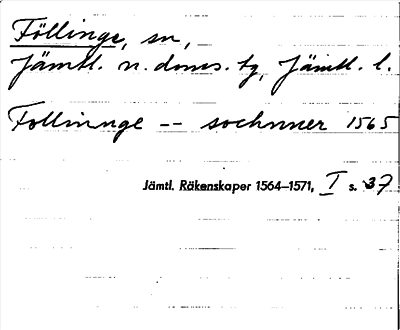 Föllinge, sn,
Jämtl. n. doms. tg, Jämtl. l.
Follinnge -- sochnner 1565
Jämtl. Räkenskaper 1564–1571, I s. 37